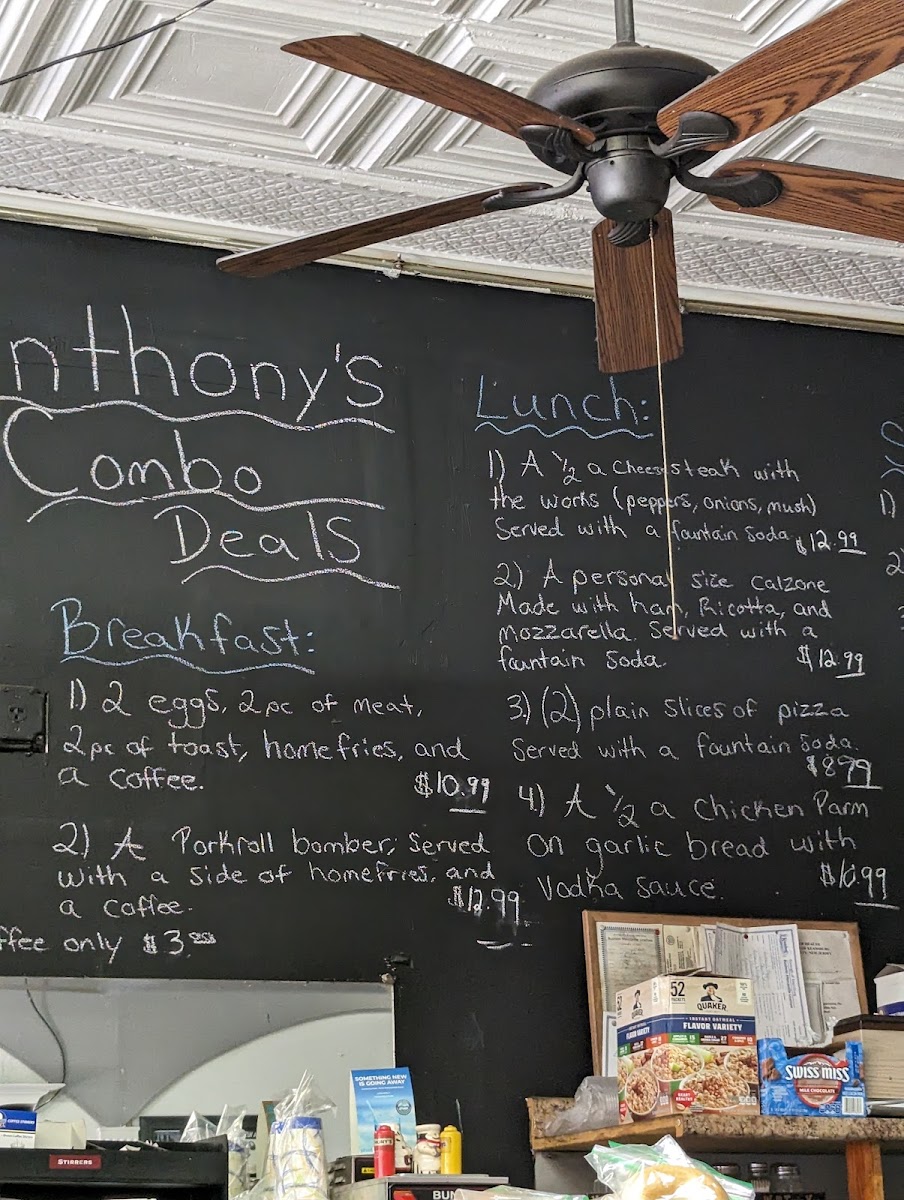 nthony's
Combo
Deals
Breakfast:
1.) 2 eggs, 2pc of meat,
2pc of toast, homefries, and
a coffee. $10.99
2.) A Porkroll bomber; Served
with a side of homefries, and
a coffee. $12.99
ffee only $3.
Lunch:
1) A 1/2 a cheesesteak with
the works (peppers, onions, mush)
Served with a fountain Soda $12.99
2.) A personal size Calzone
Made with ham, Ricotta, and
Mozzarella. Served with a
fountain Soda. $12.99
3.) (2) plain Slices of pizza
Served with a fountain Soda. $8.99
4.) A 1/2 a Chicken Parm
on garlic bread with
Vodka Sauce. $10.99
1)
2
3
52
QUAKER
INSTANT OATMEAL
FLAVOR VARIETY
SWISS MISS
MILK CHOCOLATE
SOMETHING NEW
IS GOING AWAY
STIRRERS
BUN